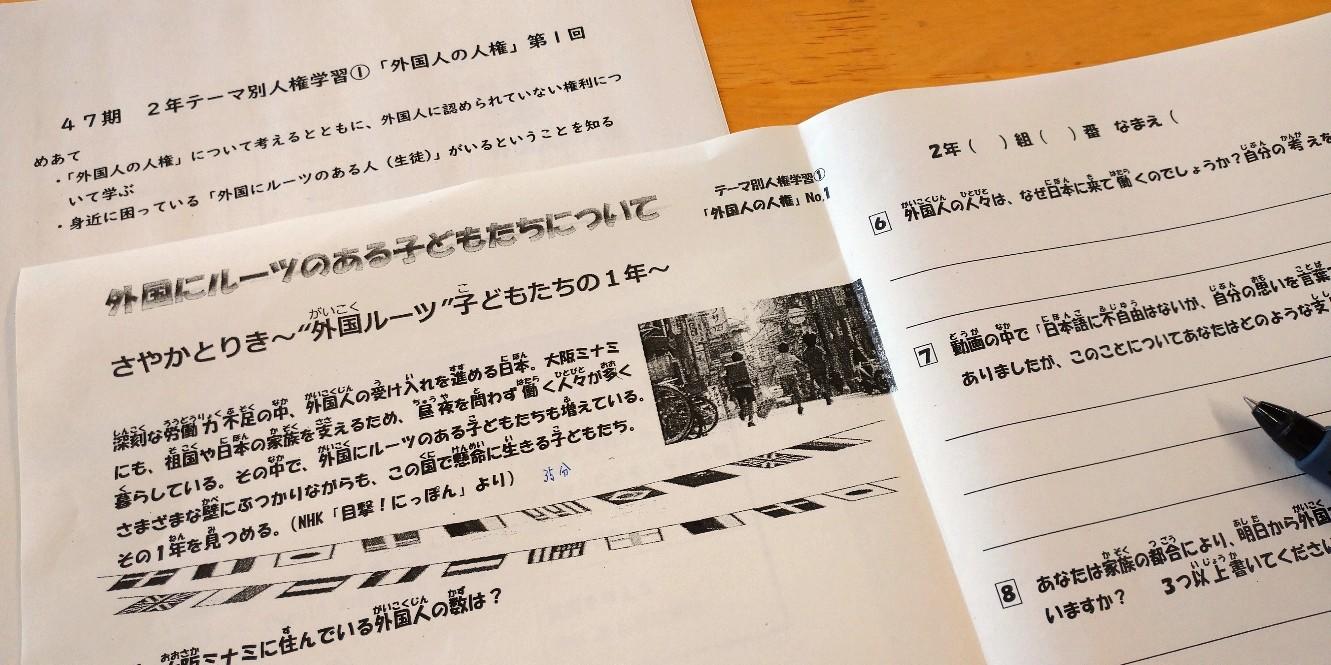 47期 2年テーマ別人権学習①「外国人の人権」第1回
めあて
・「外国人の人権」について考えるとともに、外国人に認められていない権利につ
いて学ぶ
・身近に困っている「外国にルーツのある人(生徒)」がいるということを知る
テーマ別人権学習①
「外国人の人権」No.1
外国にルーツのある子どもたちについて
さやかとりき~“外国ルーツ”子どもたちの1年~
深刻な労働力不足の中、外国人の受け入れを進める日本。大阪ミナミ
にも、祖国や日本の家族を支えるため、昼夜を問わず働く人々が多く
暮らしている。その中で、外国にルーツのある子どもたちも増えている。
さまざまな壁にぶつかりながらも、この国で懸命に生きる子どもたち。
その1年を見つめる。(NHK「目撃!にっぽん」より)
35分
大阪ミナミに住んでいる外国人の数は?
2年( )組( )番 なまえ(
6 外国人の人々は、なぜ日本に来て働くのでしょうか?自分の考えを
7 動画の中で「日本語に不自由はないが、自分の思いを言葉で
ありましたが、このことについてあなたはどのような支
8 あなたは家族の都合により、明日から外国
いますか? 3つ以上書いてください